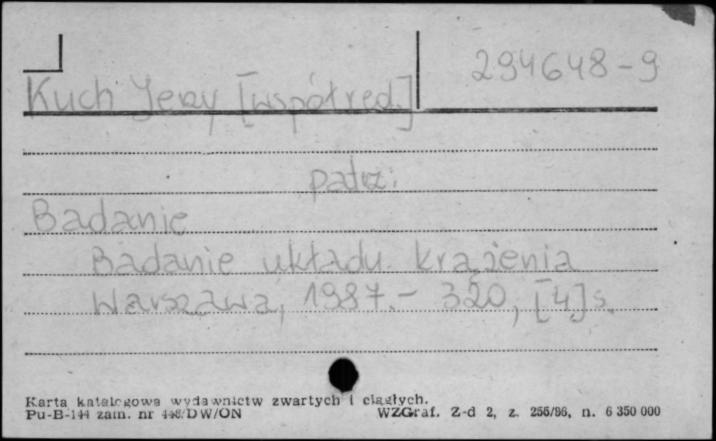 294648-9
Kuch Jerzy [współred.]
patrz:
Badanie
Badanie układu krążenia
Warszawa, 1987.- 320, [4] s.
Karta katalogowa wydawnictw zwartych i ciągłych.
Pu-B-144 zam. nr 448/DW/ON WZGraf. Z-d 2, z. 256/86, n. 6 350 000